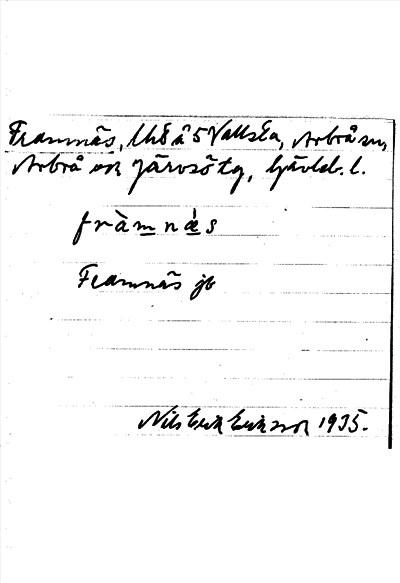 Framnäs, lht å 5 Vallsta, Arbrå sn,
Arbrå och Järvsö tg, Gävleb. l.
fràmnä́s
Framnäs jb
Nils Erik Eriksson 1935.